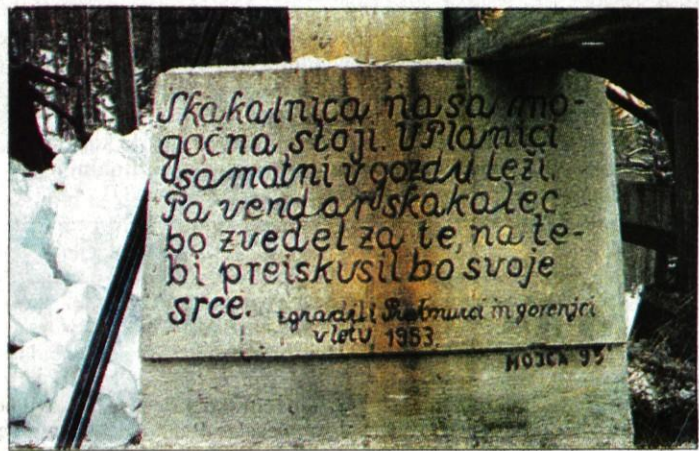 Skakalnica naša mo-
gočna stoji. V Planici
samotni v gozdu leži.
Pa vendar skakalec
bo zvedel za te, na te-
bi preiskusil bo svoje
srce.
zgradili in gorenjci
v letu 1953.
MOJCA 95'